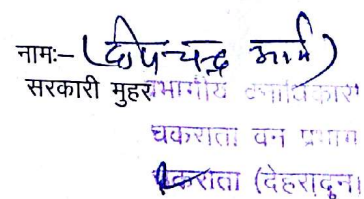 नामः– (दीपचन्द्र आर्य)
सरकारी मुहर प्रभागीय वनाधिकारी
चकराता वन प्रभाग
चकराता (देहरादून)